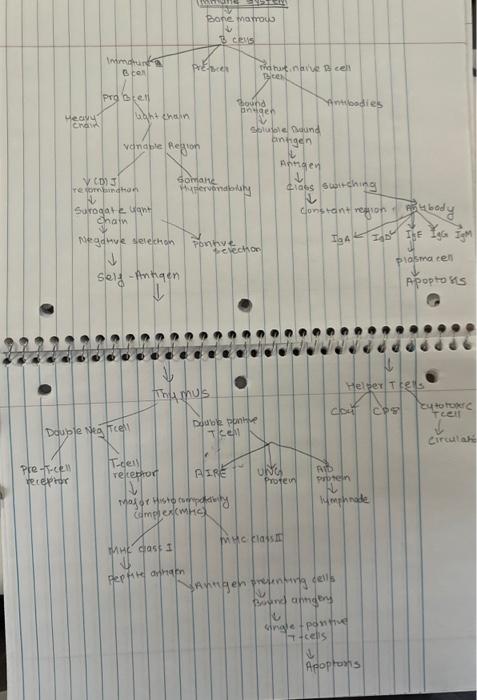 Immune System
Bone marrow
B cells
Immature B cell
Pre-B cell
Mature naive B cell
B cell
Pro B cell
Bound antigen
Antibodies
Heavy chain
Light chain
Soluble Bound antigen
Variable Region
Antigen
V(D)J recombination
Somatic Hypervariability
Class switching
Surogate light chain
Constant region
Antibody
Negative selection
Positive selection
IgA
IgD
IgE
IgG
IgM
Self-Antigen
plasma cell
Apoptosis
Thymus
Helper T cells
Double Neg T cell
Double positive T cell
CD4
CD8
cytotoxic T cell
circulate
Pre-T-cell receptor
T-cell receptor
AIRE
UNG Protein
AID protein
lymphnode
Major Histocompatability complex (MHC)
MHC class I
MHC class II
peptite antigen
Antigen presenting cells
Bound antigen
single-positive T-cells
Apoptosis